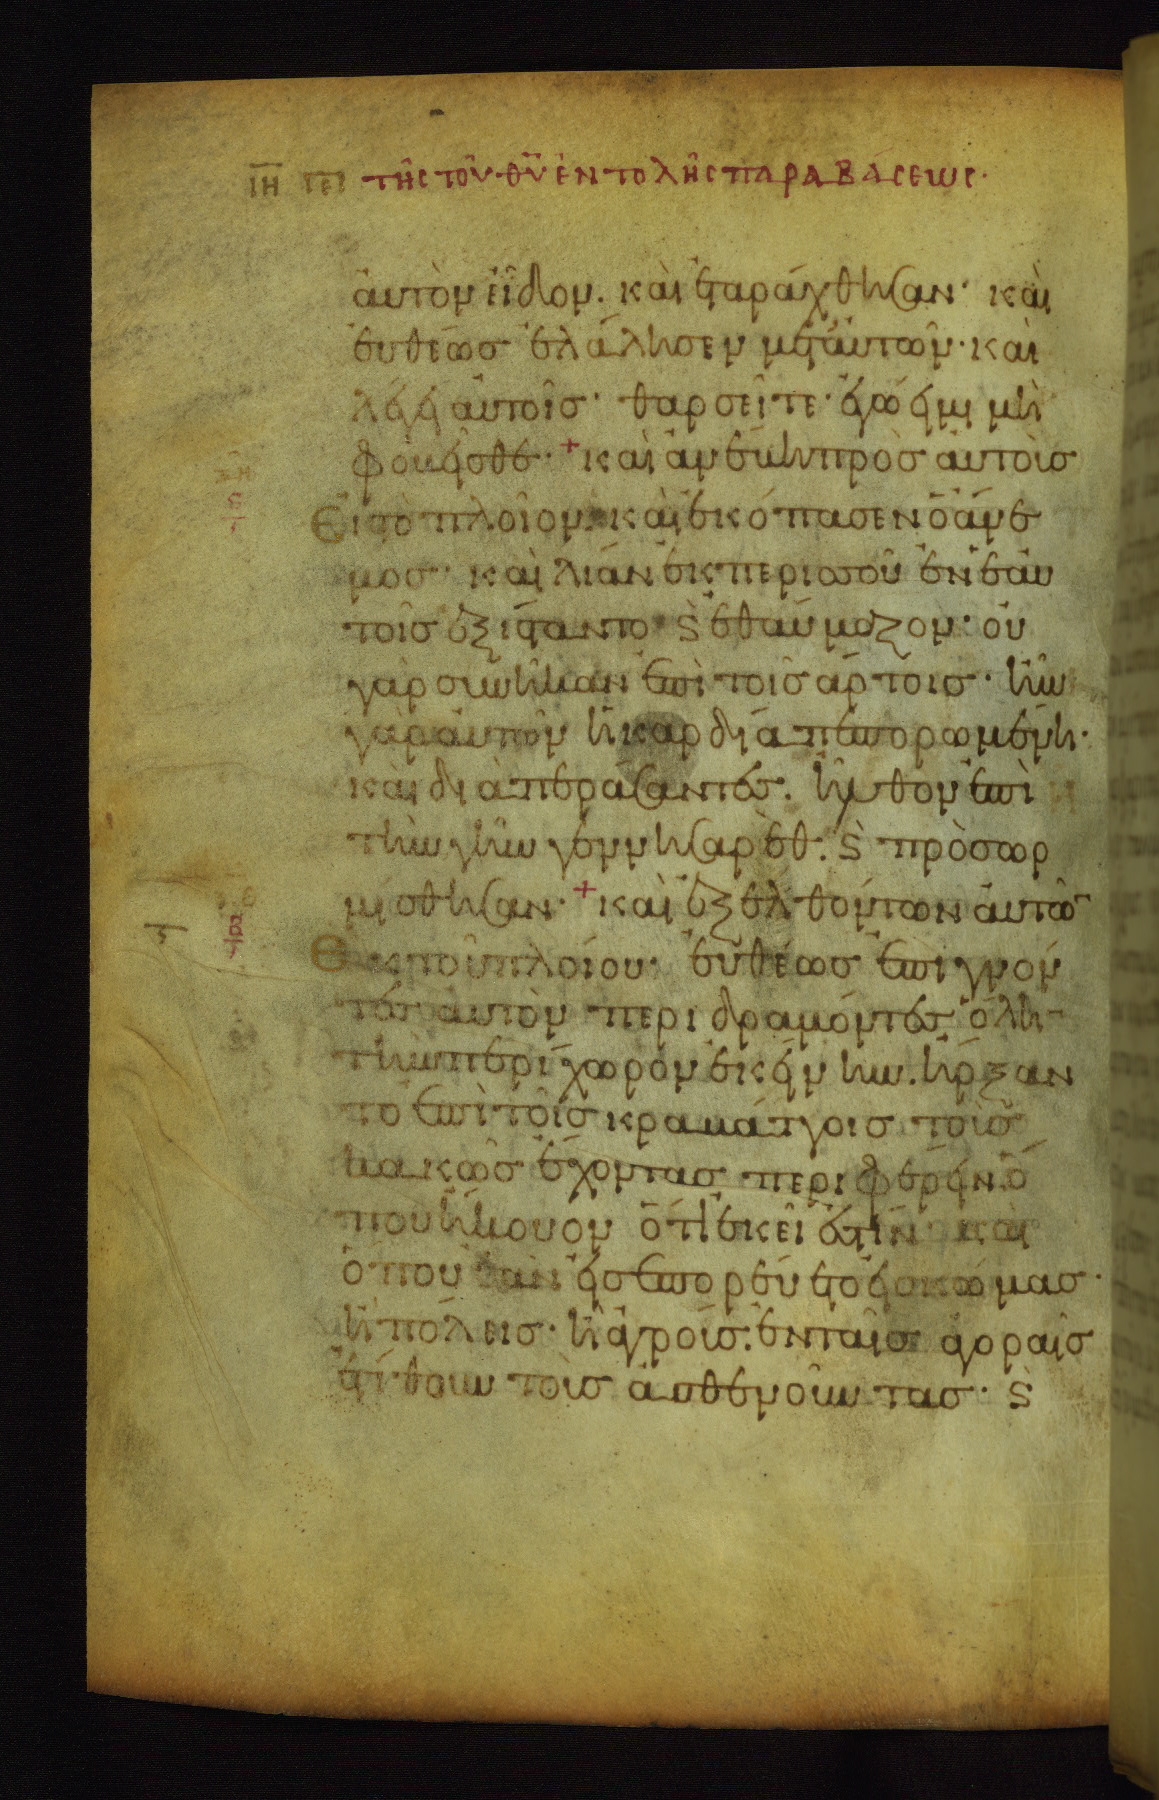 ιη πει τῆς τοῦ θυ ἐντολῆς παραβάσεως·
ἀυτὸν εἶδον. καὶ ἐταράχθησαν· καὶ
ἐυθέως ἐλάλησεν μετ᾽ἀυτῶν· καὶ
λέγει ἀυτοῖς· θαρσεῖτε· ἐγώ εἰμι μὴ
φοβεῖσθε· + καὶ ἀνέβη πρὸς ἀυτοὺς
Εἰς τὸ πλοῖον. καὶ ἐκόπασεν ὁ ἄνε
μος· καὶ λίαν ἐκ περισσοῦ ἐν ἑαυ
τοῖς ἐξίσταντο ϗ ἐθαύμαζον· οὐ
γὰρ συνῆκαν ἐπὶ τοῖς ἄρτοις· ἦν
γὰρ ἀυτῶν ἡ καρδία πεπορωμένη·
καὶ διαπεράσαντες. ἦλθον ἐπὶ
τὴν γῆν γεννησαρέθ. ϗ προσωρ
μίσθησαν· + καὶ ἐξελθόντων ἀυτῶ
Ἐκ τοῦ πλοίου· ἐυθέως ἐπιγνόν
τες ἀυτὸν περιδραμόντες ὅλην
τὴν περίχωρον ἐκείνην. ἤρξαν
το ἐπὶ τοῖς κραβάττοις τοὺς
κακῶς ἔχοντας περιφέρειν. ὅ
που ἤκουον ὅτι ἐκεῖ ἐστιν· καὶ
ὅπου ἂν εἰσεπορεύετο εἰς κώμας·
ἢ πόλεις· ἢ ἀγρούς. ἐν ταῖς ἀγοραῖς
ἐτίθουν τοὺς ἀσθενοῦντας· ϗ